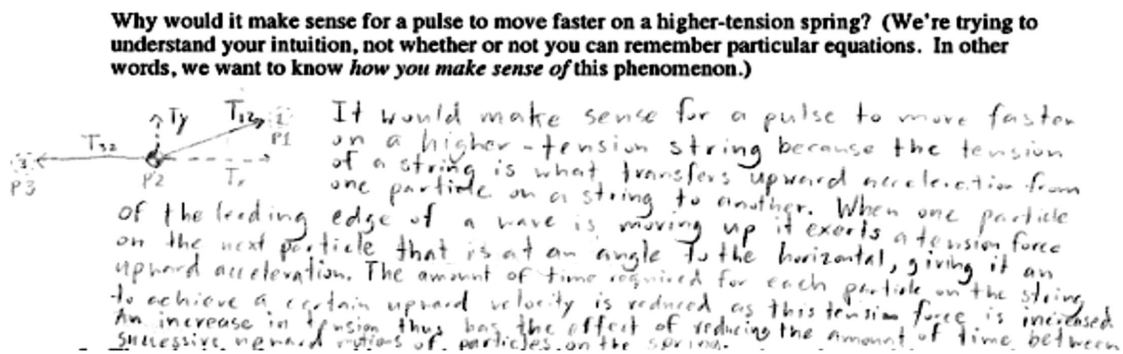 Why would it make sense for a pulse to move faster on a higher-tension spring? (We're trying to
understand your intuition, not whether or not you can remember particular equations. In other
words, we want to know how you make sense of this phenomenon.)
Ty T12 1
P1
T32
3
P3 P2 Tx
It would make sense for a pulse to move faster
on a higher-tension string because the tension
of a string is what transfers upward acceleration from
one particle on a string to another. When one particle
of the leading edge of a wave is moving up it exerts a tension force
on the next particle that is at an angle to the horizontal, giving it an
upward acceleration. The amount of time required for each particle on the string
to achieve a certain upward velocity is reduced as this tension force is increased.
An increase in tension thus has the effect of reducing the amount of time between
successive upward motions of particles on the spring.